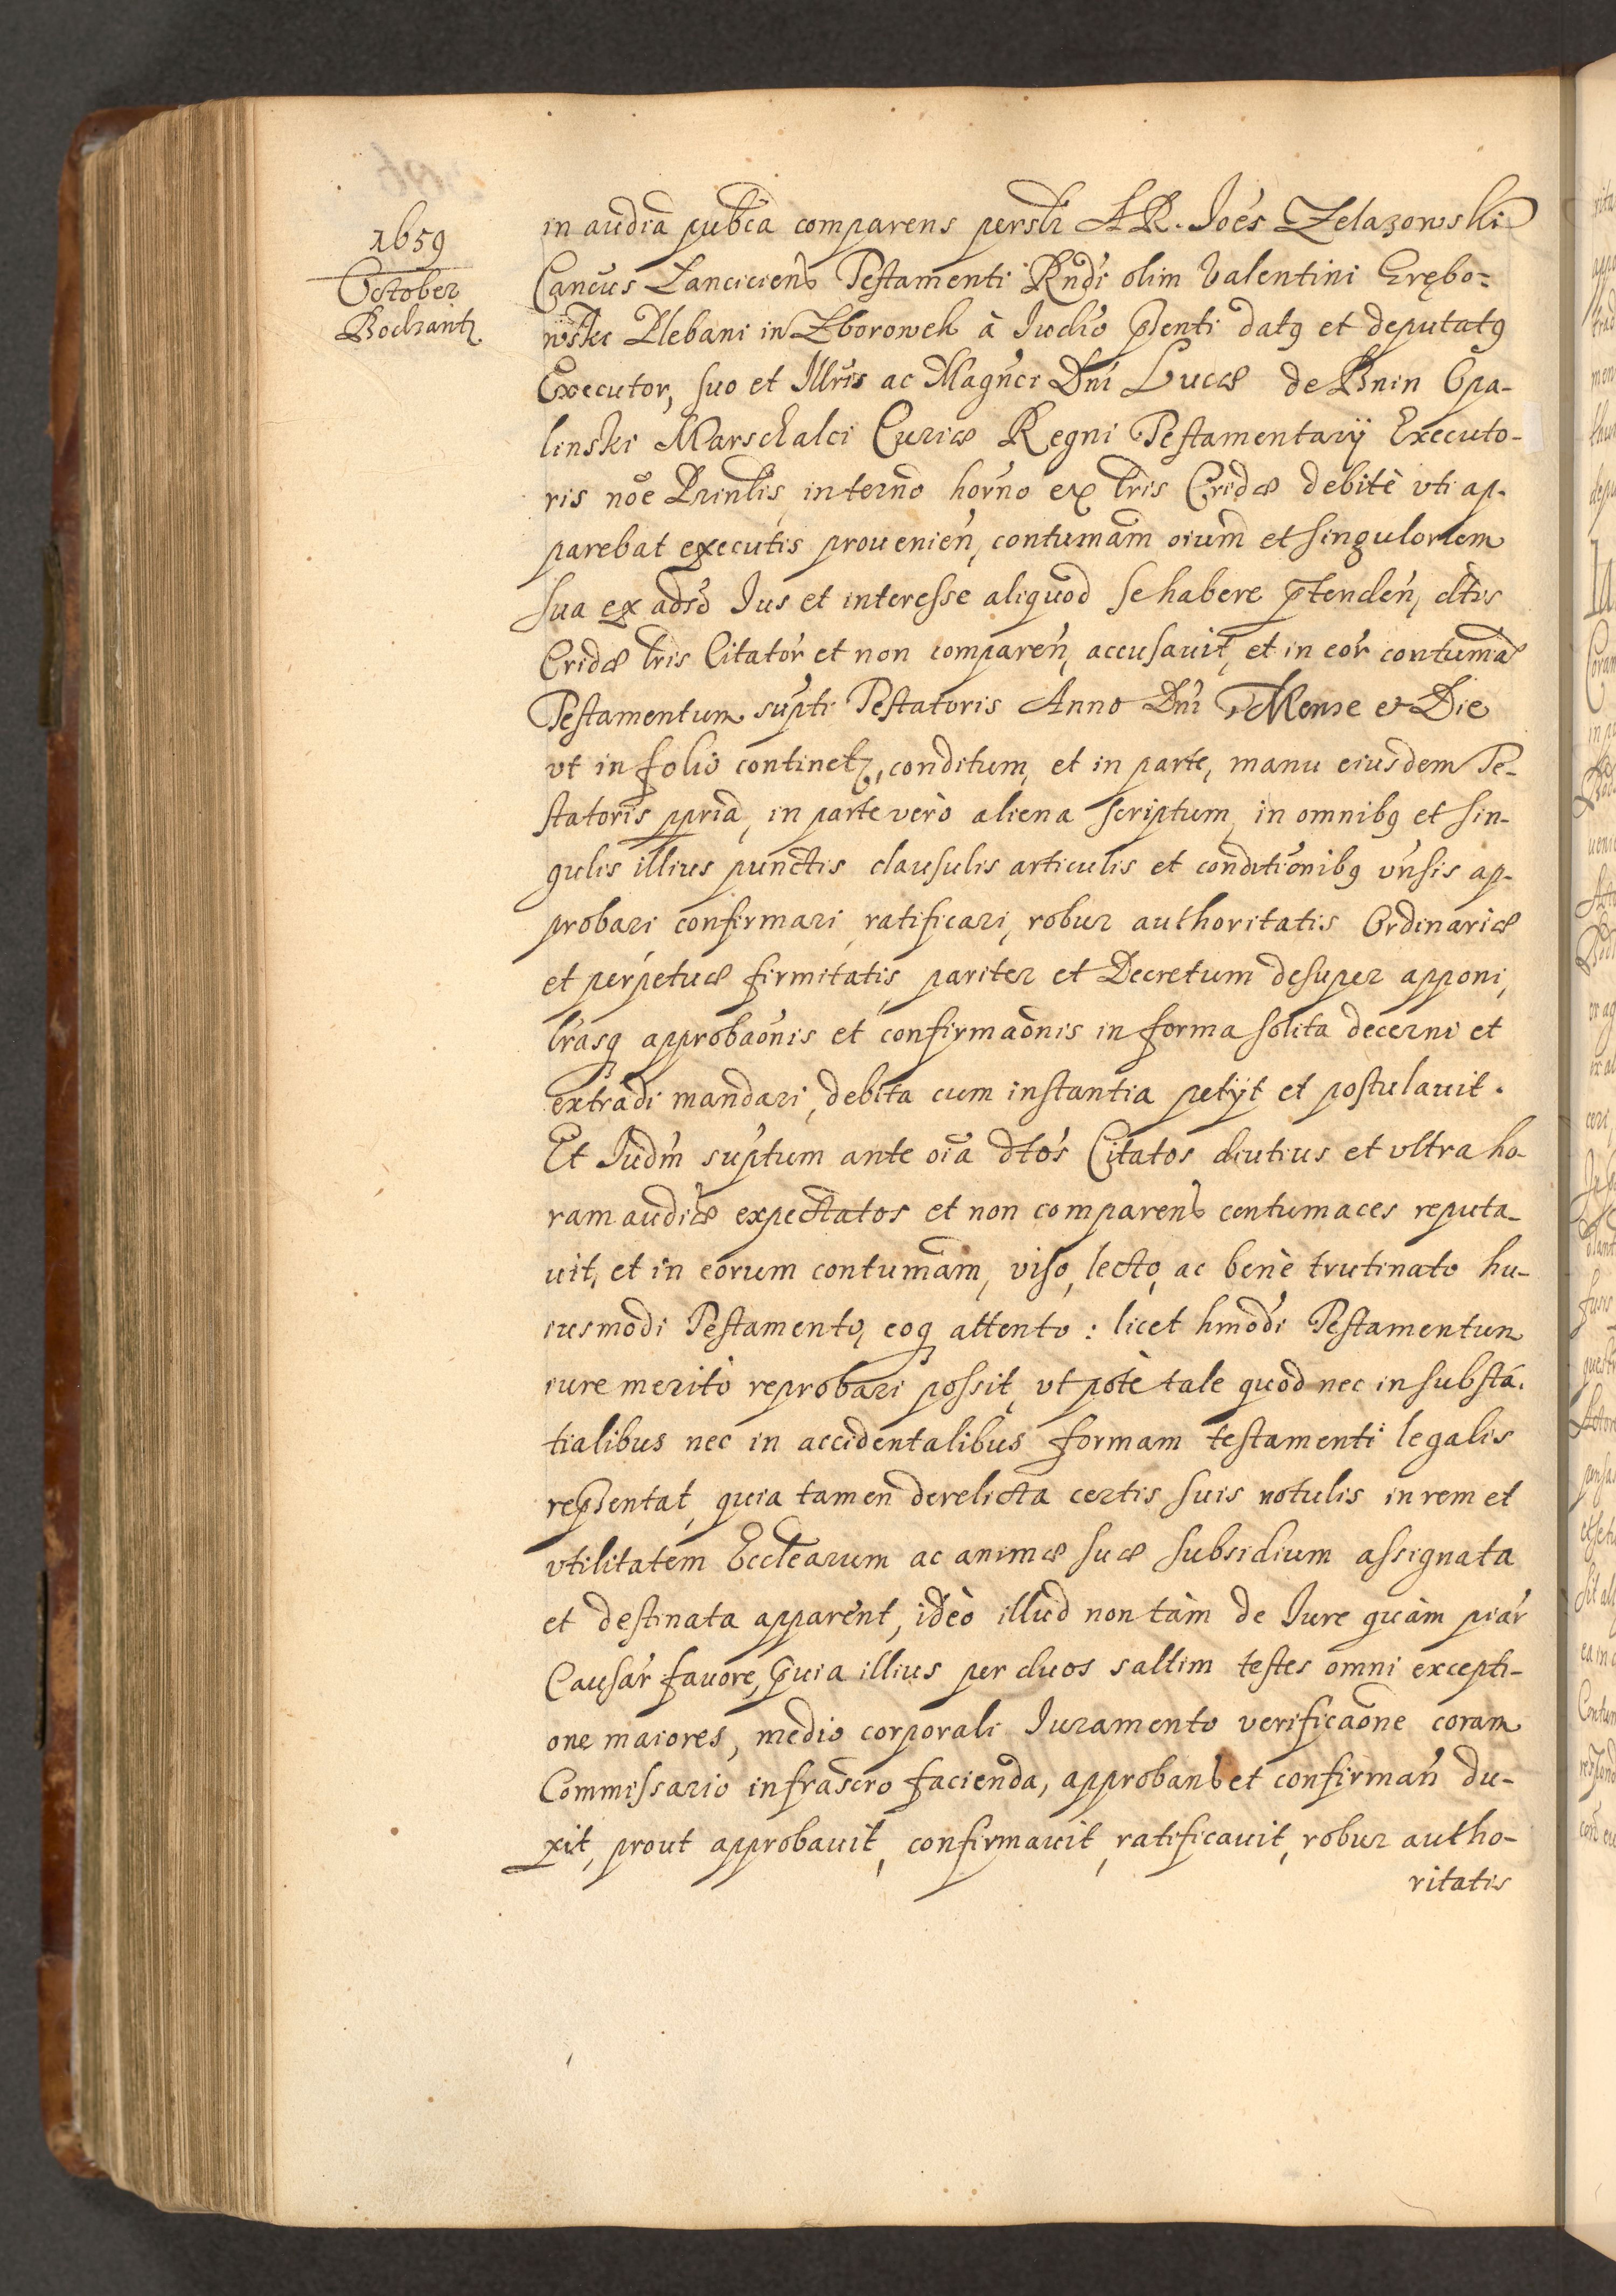 1659
October
Bodzantz
in audia pubca comparens persolr A R. Joes Zelazowski
Cancus Lanciciens Testamenti Rndi olim Valentini Erębo=
wski Plebani in Zborowek à Judio pnti datq et deputatq
Executor, suo et Illris ac Magnci Dni Lucæ de Bnin Opa-
linski Marschalci Curiæ Regni Testamentarij Executo-
ris noe Prinlis, in termo horno ex lris Cridæ debitè vti ap-
parebat executis prouenien, contumam oium et singulorum
sua ex adso Jus et interesse aliquod se habere ptenden, dtis
Cridæ lris Citator et non comparen, accusauit, et in eor contuma
Testamentum supti Testatoris Anno Dni, Mense et Die
vt in folio continetz, conditum, et in parte, manu eiusdem Te-
statoris ppria, in parte verò aliena scriptum, in omnibq et sin-
gulis illius punctis clausulis articulis et conditionibq vnsis ap-
probari confirmari, ratificari, robur authoritatis Ordinariæ
et perpetuæ firmitatis, pariter et Decretum desuper apponi,
lrasq approbaonis et confirmaonis in forma solita decerni et
extradi mandari, debita cum instantia petijt et postulauit.
Et Judm suptum ante oia dtos Citatos diutius et vltra ho-
ram audiæ expectatos et non comparens contumaces reputa-
uit, et in eorum contumam, viso, lecto, ac benè trutinato hu-
iusmodi Testamento, eoq attento: licet hmodi Testamentum
iure meritò reprobari possit, vt potè tale quod nec in substa-
tialibus nec in accidentalibus formam testamenti legalis
repsentat, quia tamen derelicta certis suis notulis in rem et
vtilitatem Ecclearum ac animæ suæ subsidium assignata
et destinata apparent, ideò illud non tàm de Jure quàm piar
Causar fauore, pvia illius per duos saltim testes omni excepti-
one maiores, medio corporali Juramento verificaone coram
Commissario infrascro facienda, approbans et confirman du-
xit, prout approbauit, confirmauit, ratificauit, robur autho-
ritatis